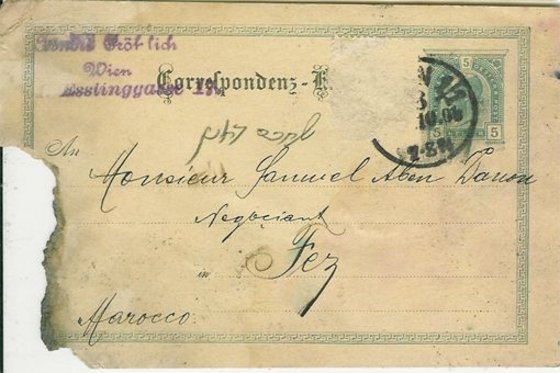 Fröhlich
Wien
Esslinggasse 13
Correspondenz-K
5 5
10.00
An
Monsieur Samuel Aben Danon
Negociant
in Fez
Marocco